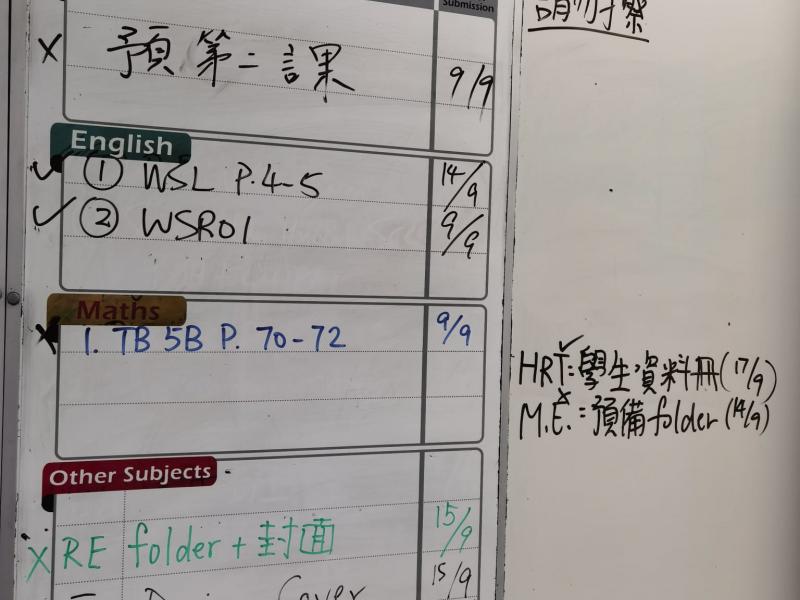 Submission
請勿擦
X 預第二課 9/9
English
✓ ① WSL P.4-5 14/9
✓ ② WSR01 9/9
Maths
X 1. TB 5B P. 70-72 9/9
HRT: 學生資料冊 (17/9)
M.E.: 預備folder (14/9)
Other Subjects
X RE folder + 封面 15/9
Cover 15/9